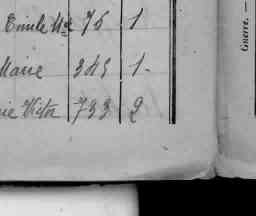 Emile Mce 75 1
Marie 345 1
ie Victor 733 2
Guerre. —